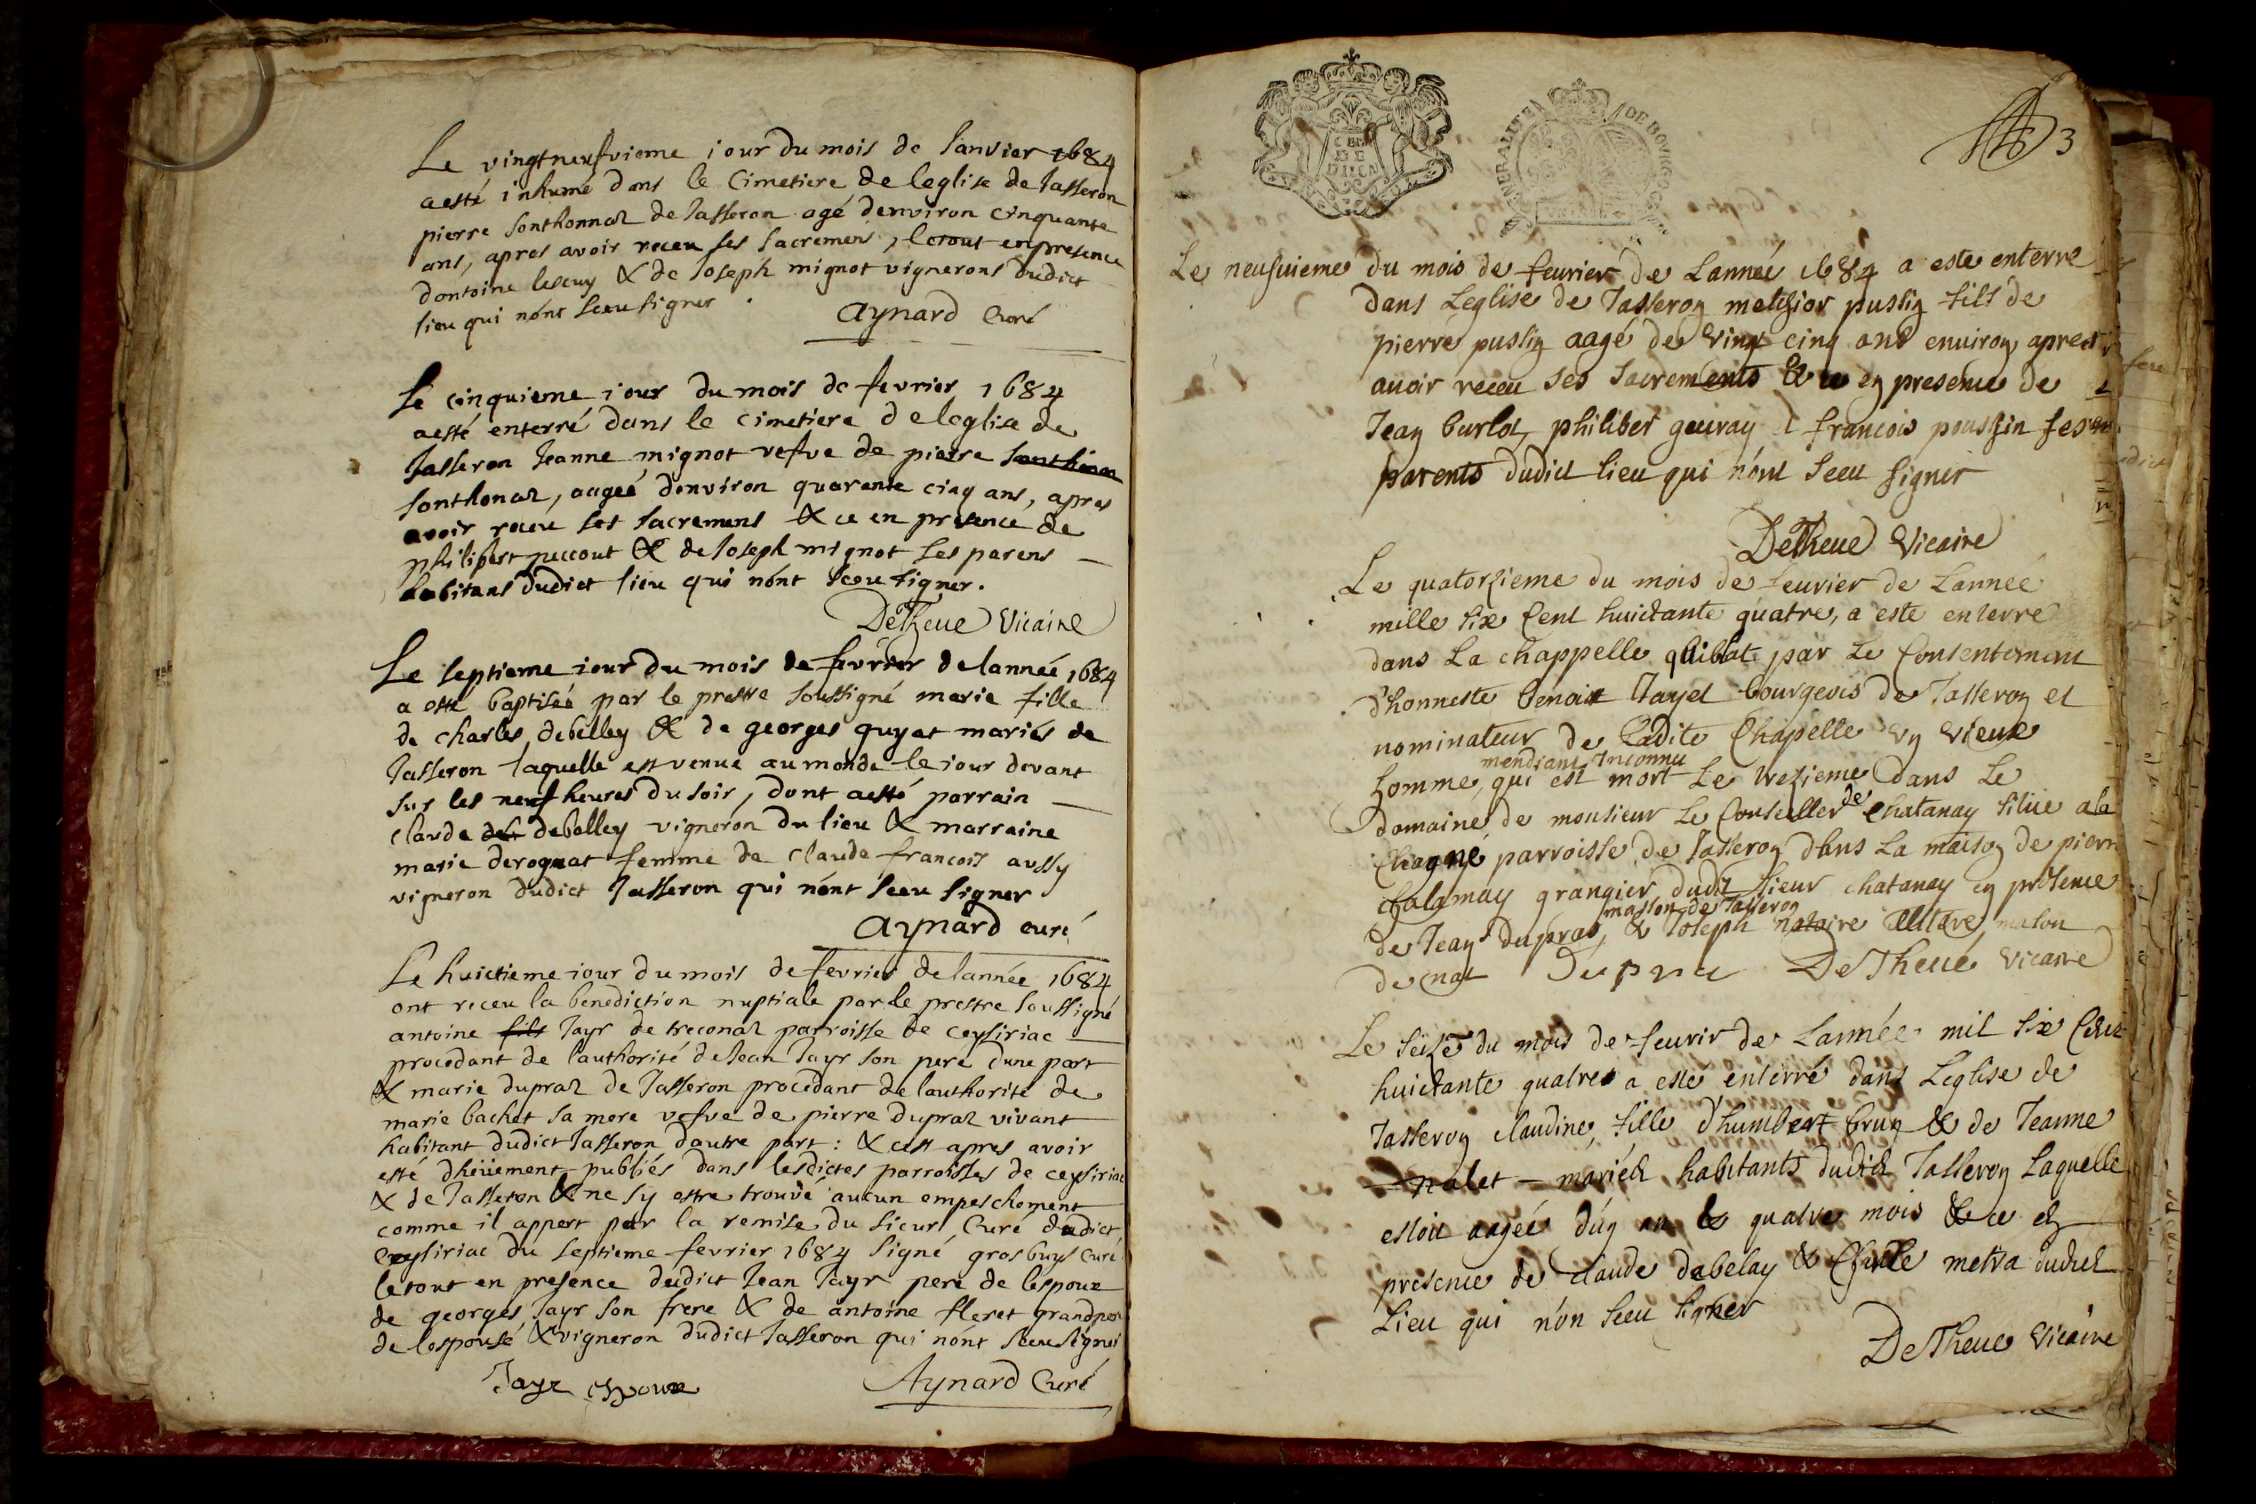 Le vingtneufvieme iour du mois de Ianvier 1684
aesté inhumé dans le Cimetiere de leglise de Iasseron
pierre sonthonnaz de Iasseron agé denviron cinquante
ans, apres avoir receu ses sacremens, letout enpresence
dantoine lescuy & de Ioseph mignot vignerons dudict
lieu qui nónt sceu signer.
Aynard Curé
Le cinquieme iour du mois de fevrier 1684
aesté enterré dans le cimetiere de leglise de
Iasseron Ieanne mignot vefve de pierre
sonthonaz, aageé denviron quarante cinq ans, apres
avoir receu ses sacremens & ce en presence de
philibert puccout & de Ioseph mignot ses parens
habitans dudict lieu qui nónt sceu signer.
DeTheue Vicaire
Le septieme iour du mois de fevrier de lanneé 1684
a esté baptiseé par le prestre soussigné marie fille
de charles debelley & de georges guyat mariés de
Iasseron laquelle est venue au monde le iour devant
sur les neuf heures du soir, dont aesté parrain
claude debelley vigneron du lieu & marraine
marie deroguat femme de claude francois aussy
vigneron dudict Iasseron qui nónt sceu signer
Aynard curé
Le huictieme iour du mois de fevrier de lannée 1684
ont receu la benediction nuptiale par le prestre soussigné
antoine fils Iayr de treconaz parroisse de ceysiriac
procedant de l'authorité de Iean Iayr son pere dune part
& marie dupraz de Iasseron procedant de lauthorité de
marie bachet sa mere vefve de pierre dupraz vivant
habitant dudict Iasseron dautre part: & cest apres avoir
esté dhüement publiés dans lesdictes parroisses de ceysiriac
& de Iasseron & ne sy estre trouvé aucun empeschement
comme il appert par la remise du sieur Curé dudict
Ceysiriac du septieme fevrier 1684 signé grosbuys curé
letout en presence dudict Iean Iayr pere de lespoux
de georges Iayr son frere & de antoine fleret grandpere
de lespouse & vigneron dudict Iasseron qui nónt sceu signer
Iayr espoux Aynard Curé
3
GENERALITE DE BOURGOGNE
Le neufuieme du mois de feurier de Lanneé 1684 a este enterre
dans Leglise de Iasseron melchior puslin fils de
pierre puslin aagé de Vingt cinq ans enuiron apres
auoir receu ses sacrements & ce en presence de
Iean burlot, philibert geuray & francois poussin ses
parents dudict lieu qui nónt sceu signer
DeTheue Vicaire
Le quatorzieme du mois de feurier de Lanneé
mille six Cent huictante quatre, a este enterre
dans La chappelle par Le Consentement
d'honneste benoit Iayet bourgeois de Iasseron et
nominateur de Ladite Chapelle un vieux
mendiant Inconnu
homme, qui est mort Le trezieme dans Le
domaine de monsieur Le Conseiller de Chatanay situe a la
Chagne parroisse de Iasseron dans La maison de pierre
Chalamay grangier dudit sieur chatanay en presence
masson de Iasseron
de Iean dupras, & Ioseph masson
de Dupra DeTheue Vicaire
Le seize du mois de feurir de Lannée mil six Cent
huictante quatre a esté enterré dans Leglise de
Iasseron claudine, fille d'humbert brun & de Ieanne
nalet mariéz habitants dudict Iasseron Laquelle
estoit aageé d'un an & quatre mois & ce en
presence de claude debelay & metra dudict
Lieu qui n'ón sceu signer
DeTheue Vicaire